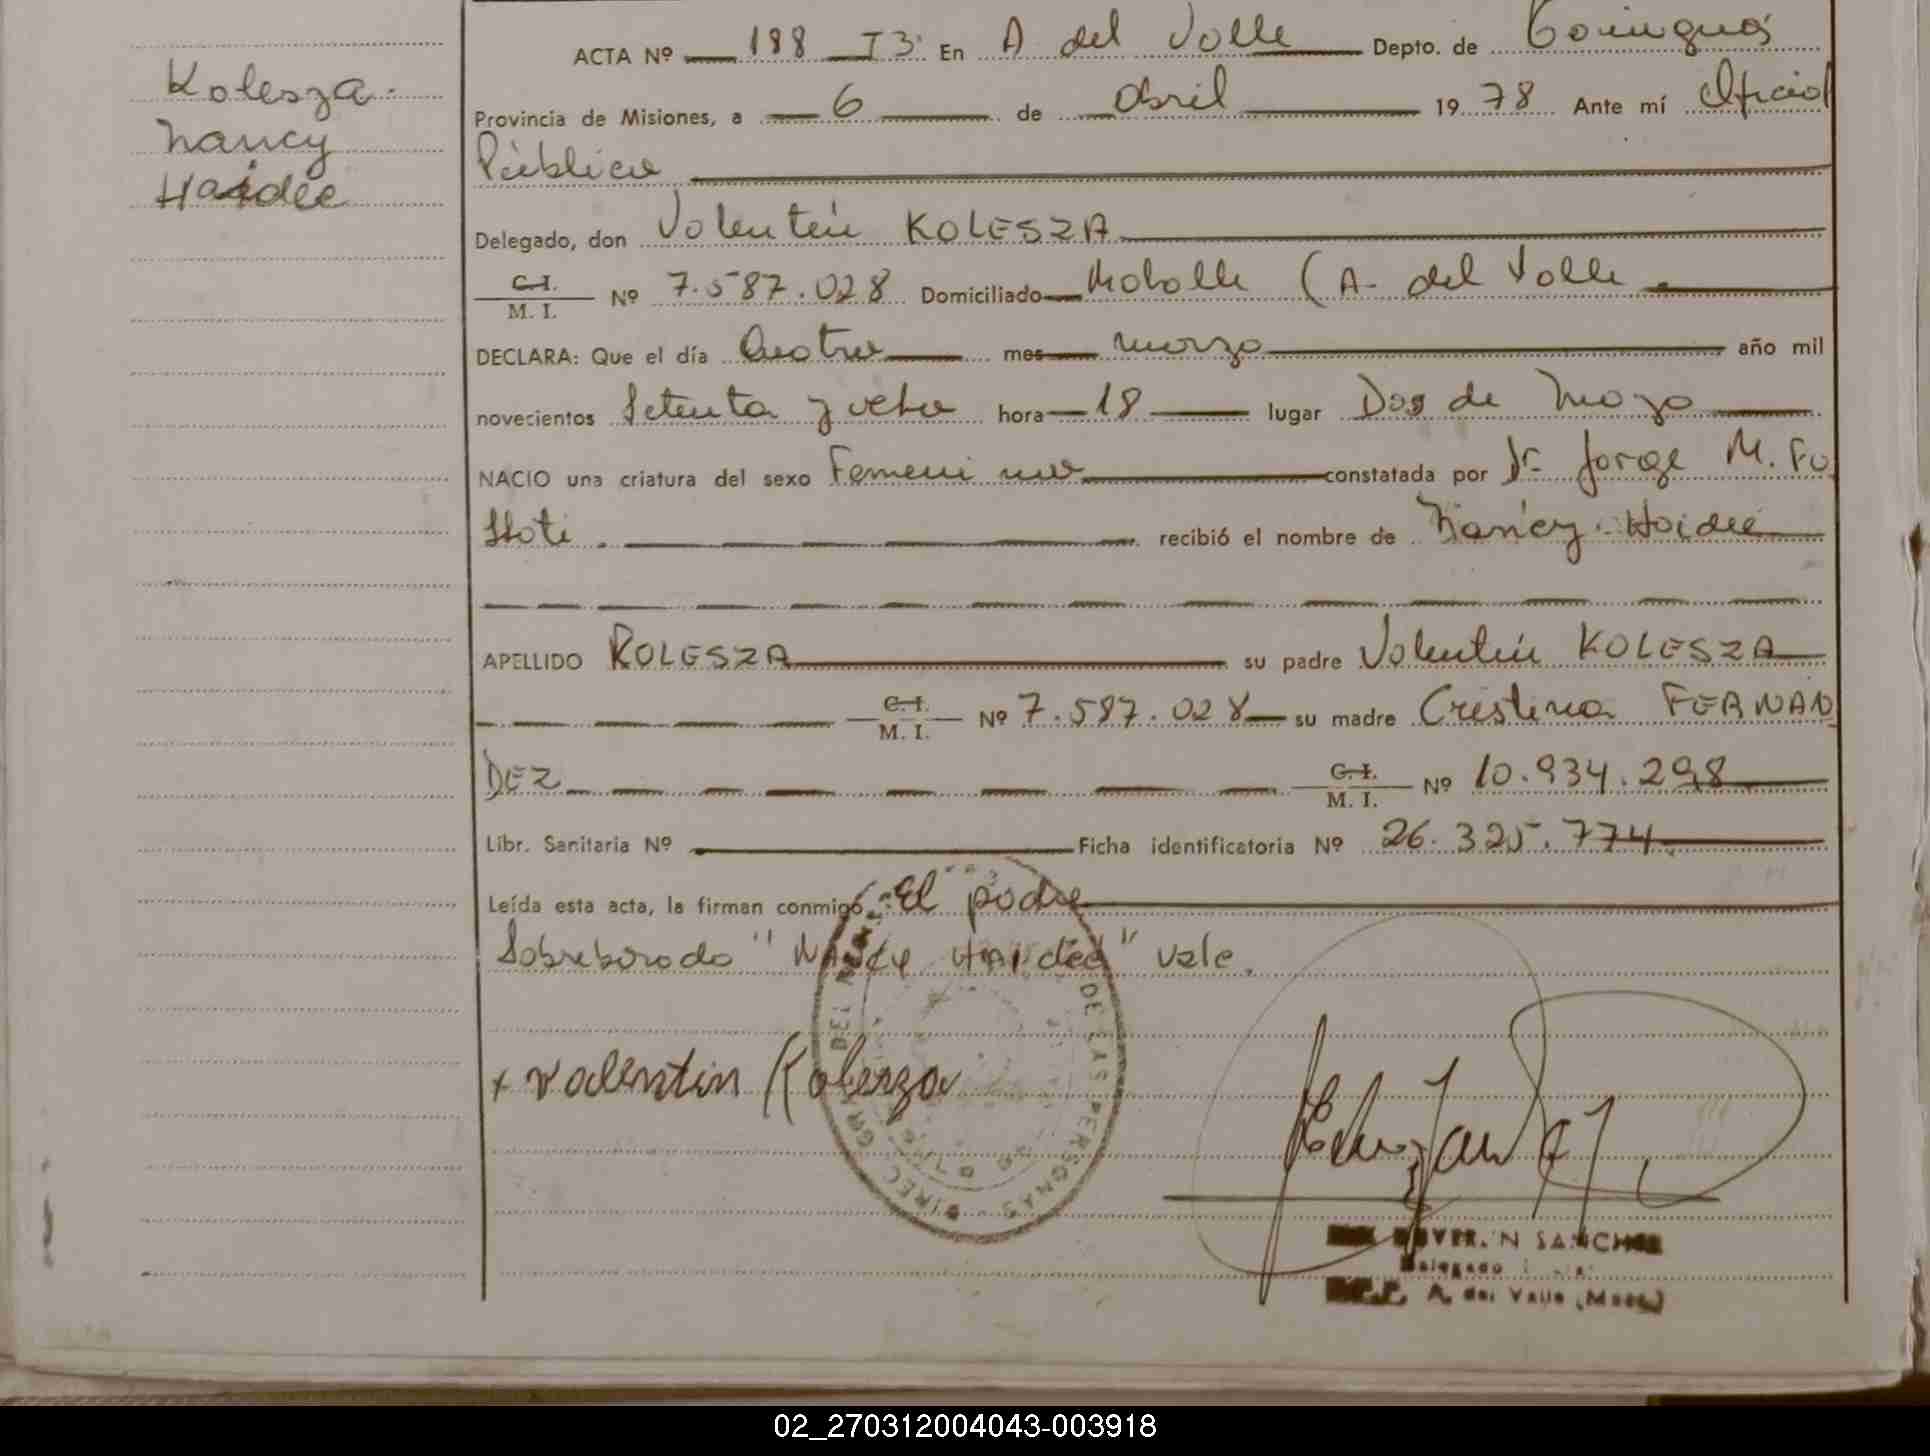 Kolesza
Nancy
Haidee
ACTA Nº 188 T3 En A del Valle Depto. de Cainguás
Provincia de Misiones, a 6 de Abril 1978 Ante mí Oficial
Público
Delegado, don Valentín KOLESZA
C.I. M.I. Nº 7.587.028 Domiciliado (A. del Valle
DECLARA: Que el día Cuatro mes marzo año mil
novecientos Setenta y ocho hora 18 lugar Dos de Mayo
NACIO una criatura del sexo Femenino constatada por Dr. Jorge M. Fo
recibió el nombre de Nancy Haidée
APELLIDO KOLESZA su padre Valentín KOLESZA
C.I. M.I. Nº 7.587.028 su madre Cristina FERNAN
DEZ C.I. M.I. Nº 10.934.298
Libr. Sanitaria Nº Ficha identificatoria Nº 26.325.774
Leída esta acta, la firman conmigo: El padre
Sobreborrado "Nancy Haidée" vale.
x Valentin Kolesza
DIREC. GR DEL DE LAS PERSONAS
SANCHEZ
Delegado
A. del Valle (Mnes.)
02_270312004043-003918